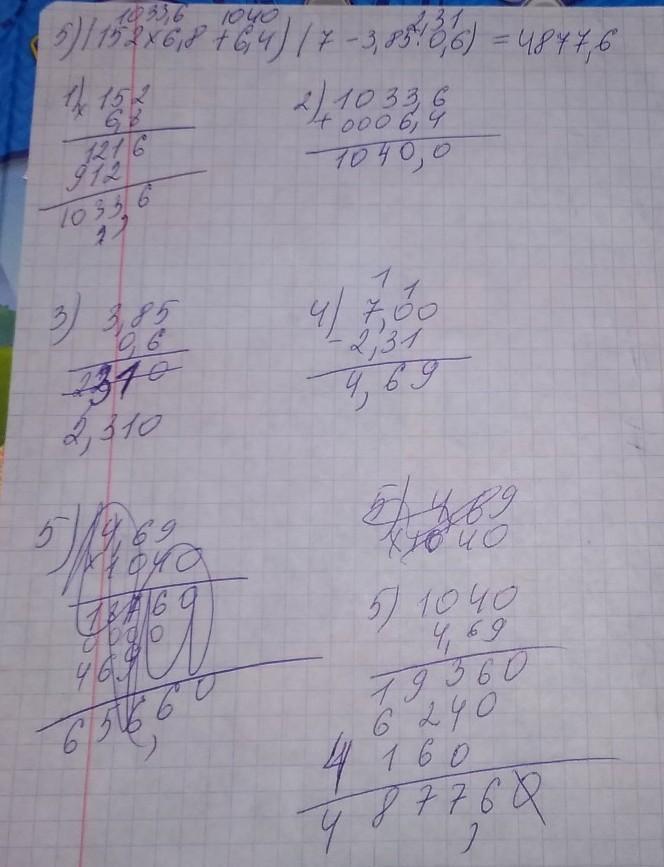 1033,6 1040 2,31
5) (152×6,8 +6,4) (7 - 3,85·0,6) = 4877,6
1) ×152
6,8
1216
912
1033,6
2) 1033,6
+ 0006,4
1040,0
3) 3,85
0,6
2310
2,310
1 1
4) 7,00
- 2,31
4,69
5) 4,69
1040
0000
469
65660
5) 4,69
×1040
5) 1040
4,69
19360
6 240
4 160
4 877,60